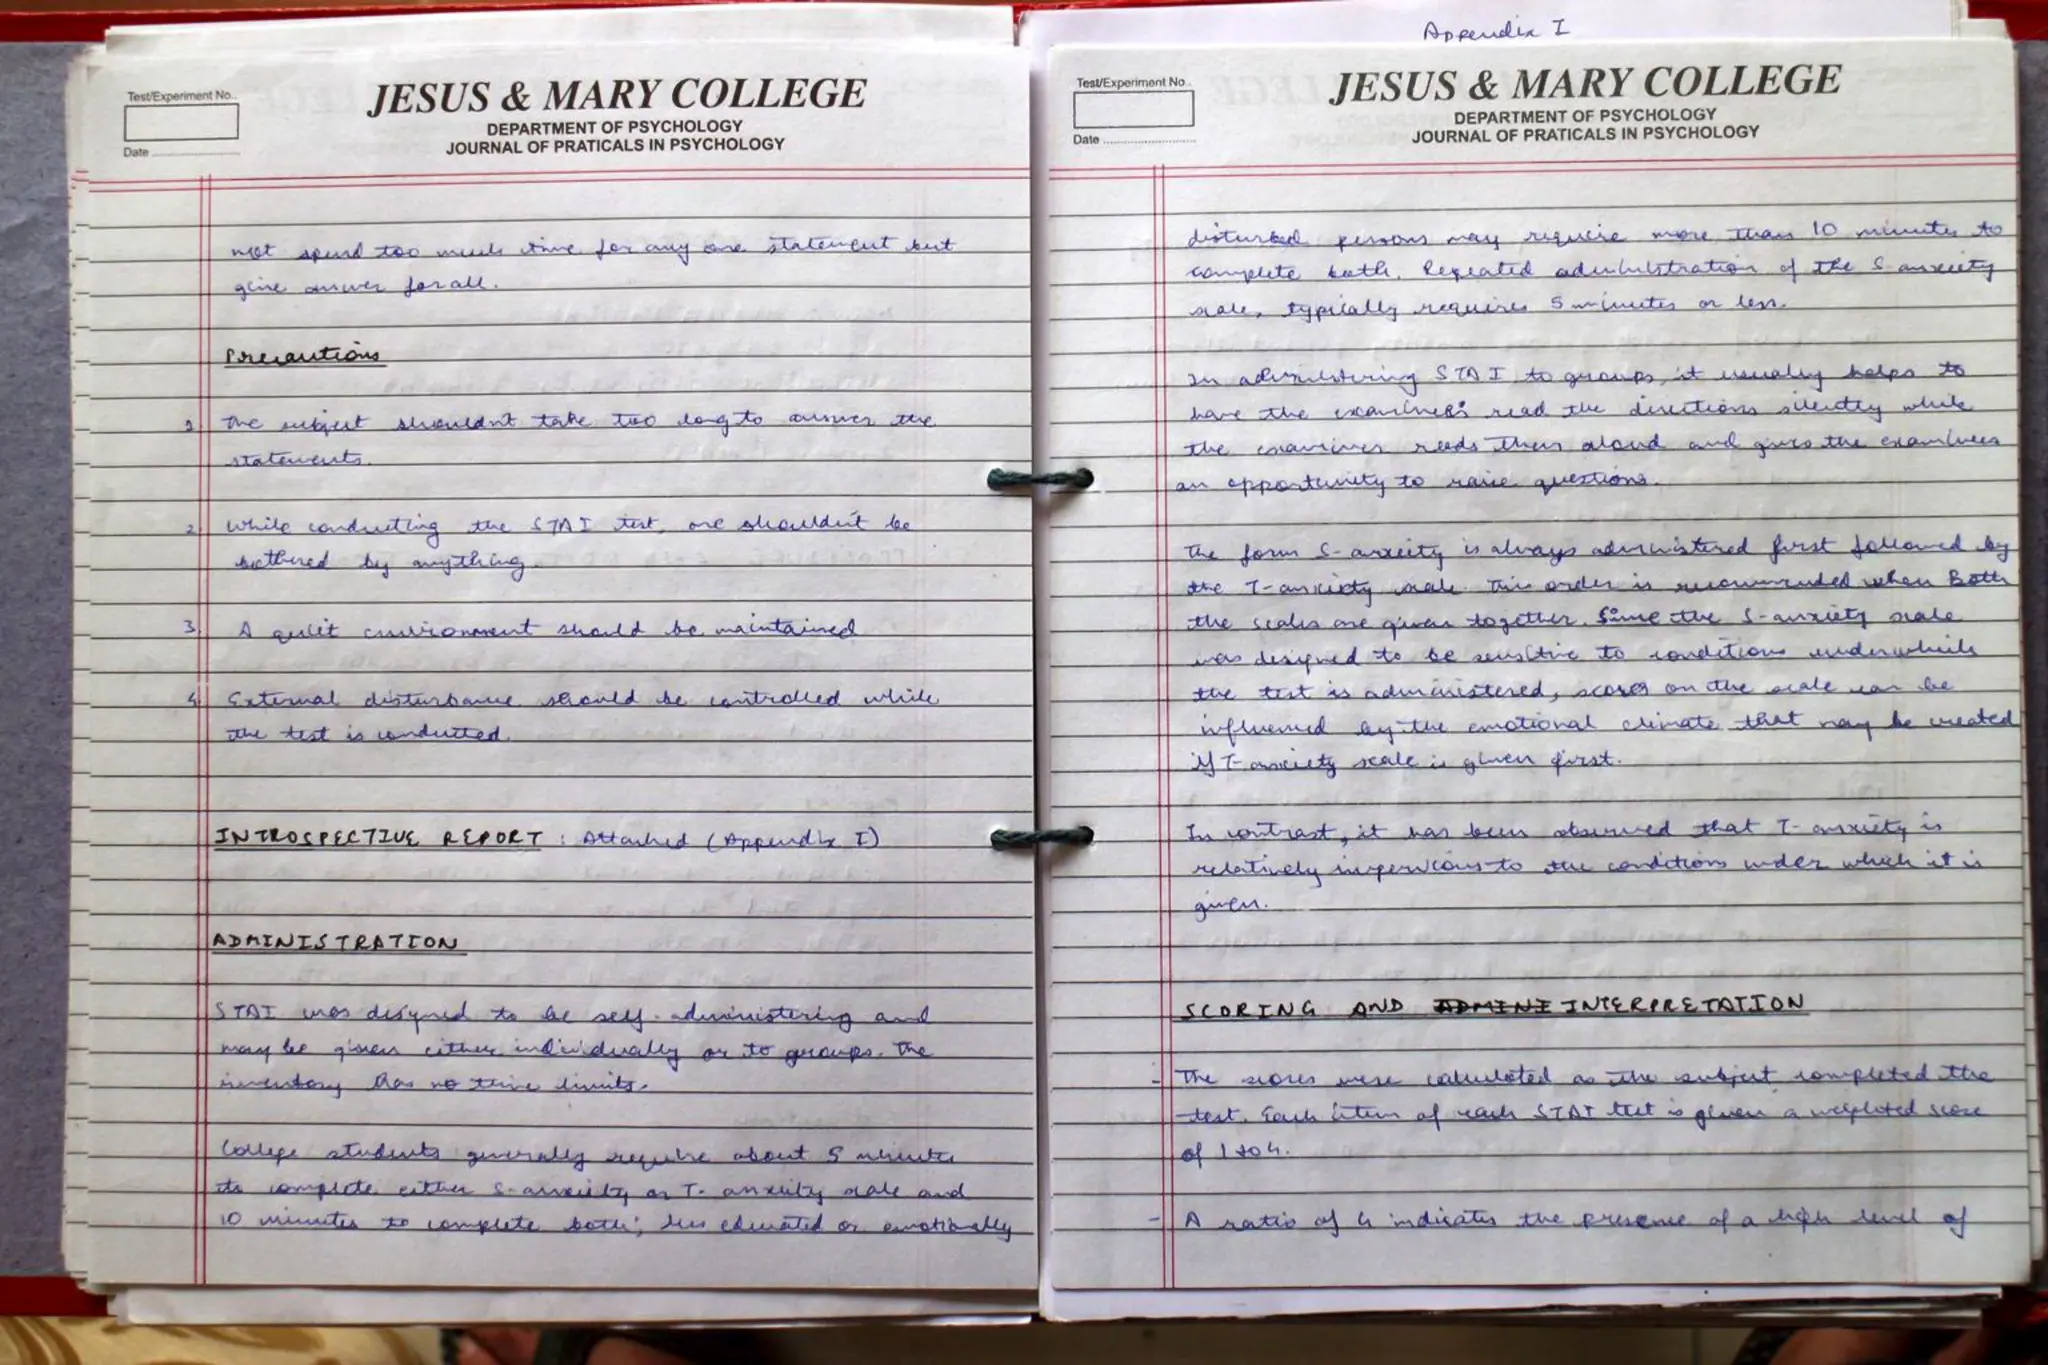 Test/Experiment No..
Date
JESUS & MARY COLLEGE
DEPARTMENT OF PSYCHOLOGY
JOURNAL OF PRATICALS IN PSYCHOLOGY
not spend too much time for any one statement but
give answer for all.
Precautions
1. The subject shouldn't take too long to answer the
statements.
2. While conducting the STAI test, one shouldn't be
bothered by anything.
3. A quiet environment should be maintained
4. External disturbance should be controlled while
the test is conducted.
INTROSPECTIVE REPORT : Attached (Appendix I)
ADMINISTRATION
STAI was designed to be self-administering and
may be given either individually or to groups. The
inventory has no time limits.
College students generally require about 5 minutes
to complete either S-anxiety or T-anxiety scale and
10 minutes to complete both; less educated or emotionally
Appendix I
Test/Experiment No..
Date
JESUS & MARY COLLEGE
DEPARTMENT OF PSYCHOLOGY
JOURNAL OF PRATICALS IN PSYCHOLOGY
disturbed persons may require more than 10 minutes to
complete both. Repeated administration of the S-anxiety
scale, typically requires 5 minutes or less.
In administering STAI to groups, it usually helps to
have the examinees read the directions silently while
the examiner reads them aloud and gives the examinees
an opportunity to raise questions.
The form S-anxiety is always administered first followed by
the T-anxiety scale. This order is recommended when Both
the scales are given together. Since the S-anxiety scale
was designed to be sensitive to conditions under which
the test is administered, scores on the scale can be
influenced by the emotional climate that may be created
if T-anxiety scale is given first.
In contrast, it has been observed that T-anxiety is
relatively impervious to the conditions under which it is
given.
SCORING AND ADMINI INTERPRETATION
- The scores were calculated as the subject completed the
test. Each item of each STAI test is given a weighted score
of 1 to 4.
- A ratio of 4 indicates the presence of a high level of